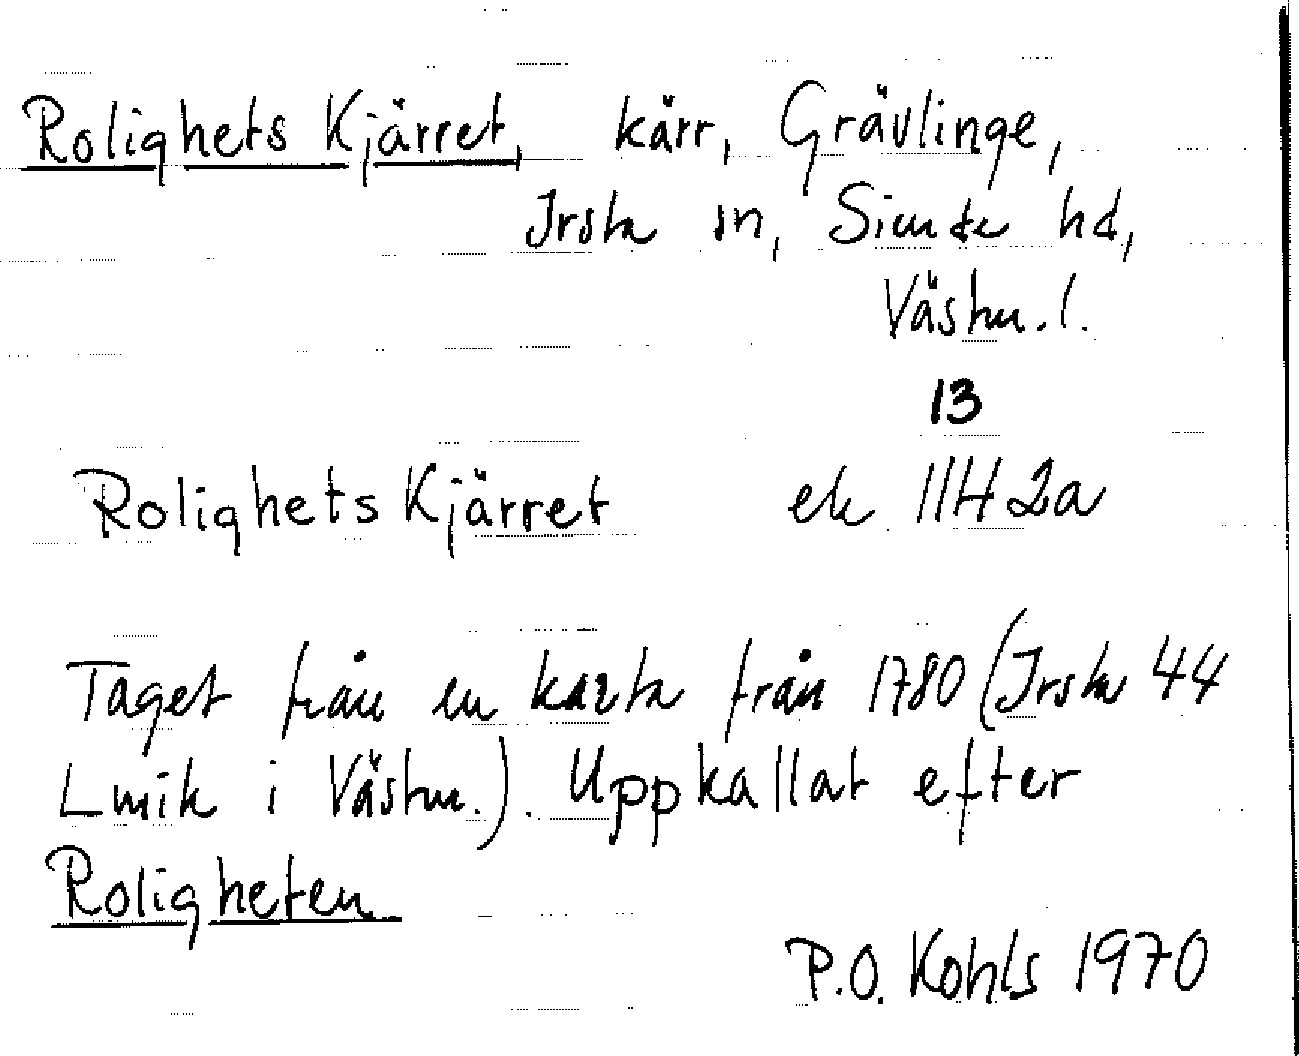 Rolighets Kjärret, kärr, Grävlinge,
Irsta sn, Siende hd,
Västm. l.
13
Rolighets Kjärret ek 11H 2a
Taget från en karta från 1780 (Irsta 44
Lmik i Västm.). Uppkallat efter
Roligheten
P.O. Kohls 1970